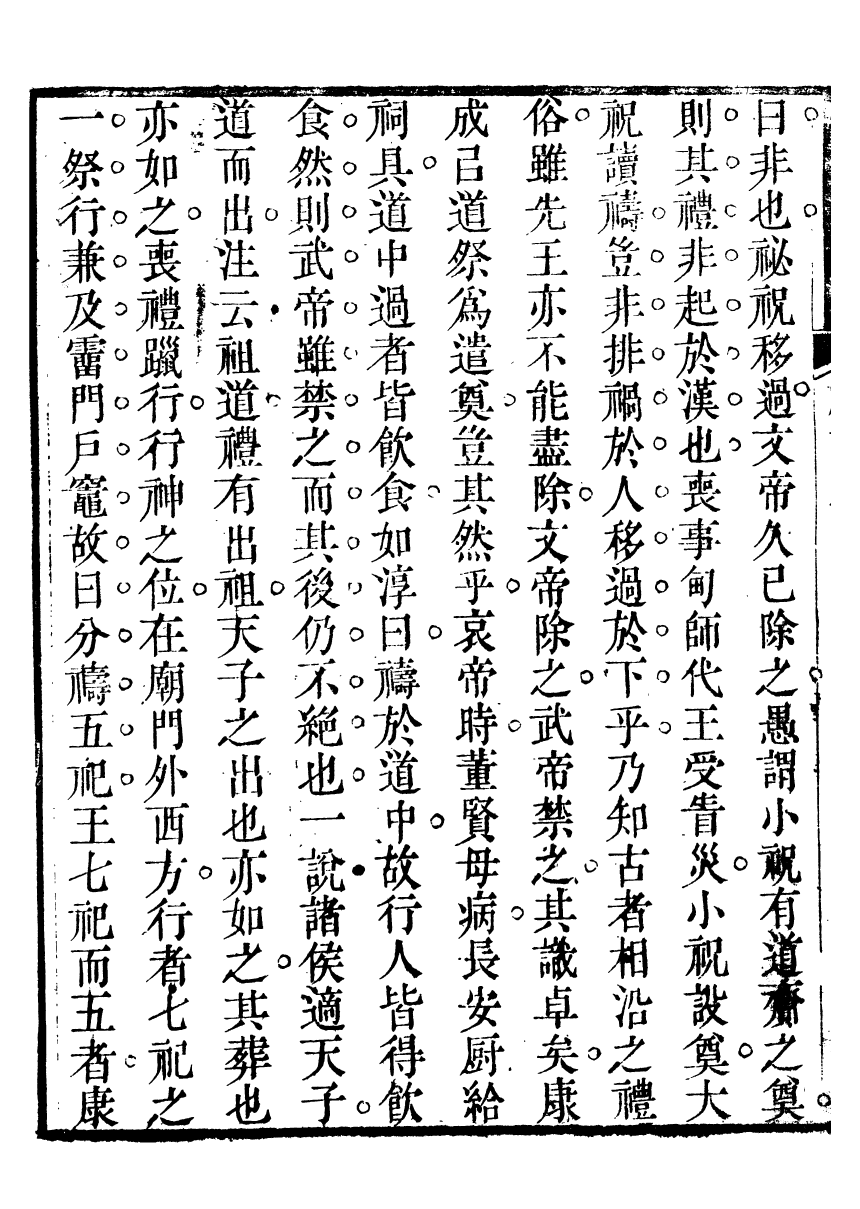 曰非也祕祝移過文帝久已除之愚謂小祝有道齎之奠
則其禮非起於漢也喪事甸師代王受眚災小祝設奠大
祝讀禱豈非排禍於人移過於下乎乃知古者相沿之禮
俗雖先王亦不能盡除文帝除之武帝禁之其識卓矣康
成已道祭爲遣奠豈其然乎哀帝時董賢母病長安厨給
祠具道中過者皆飮食如淳曰禱於道中故行人皆得飮
食然則武帝雖禁之而其後仍不絶也一說諸侯適天子
道而出注云祖道禮有出祖天子之出也亦如之其葬也
亦如之喪禮躐行行神之位在廟門外西方行者七祀之
一祭行兼及霤門戸竈故曰分禱五祀王七祀而五者康